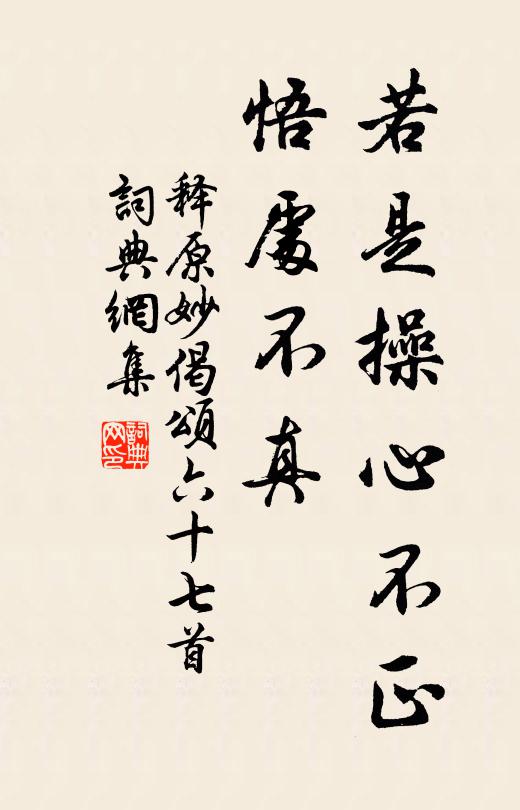 若是操心不正
悟處不真
释原妙偈頌六十七首
詞典網集
詞典
网印